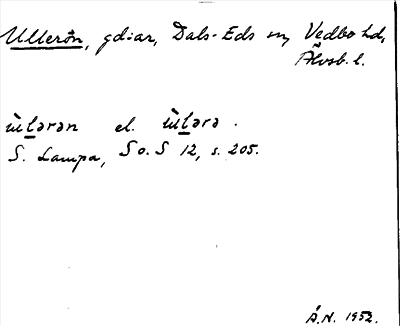 Ullerön, gdar, Dals-Eds sn, Vedbo hd,
Älvsb. l.
ùlərən el. ùlərə.
S. Lampa, SoS 12, s. 205.
Å.N. 1952.